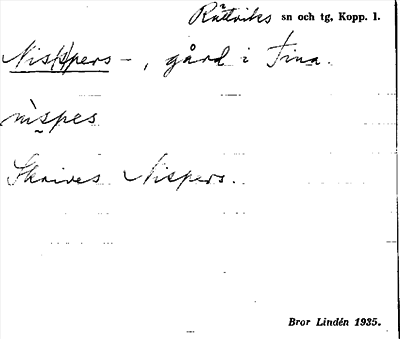 Rättviks sn och tg, Kopp. l.
Nis(s)pers -, gård i Fina.
nìspes
Skrives Nispers.
Bror Lindén 1935.